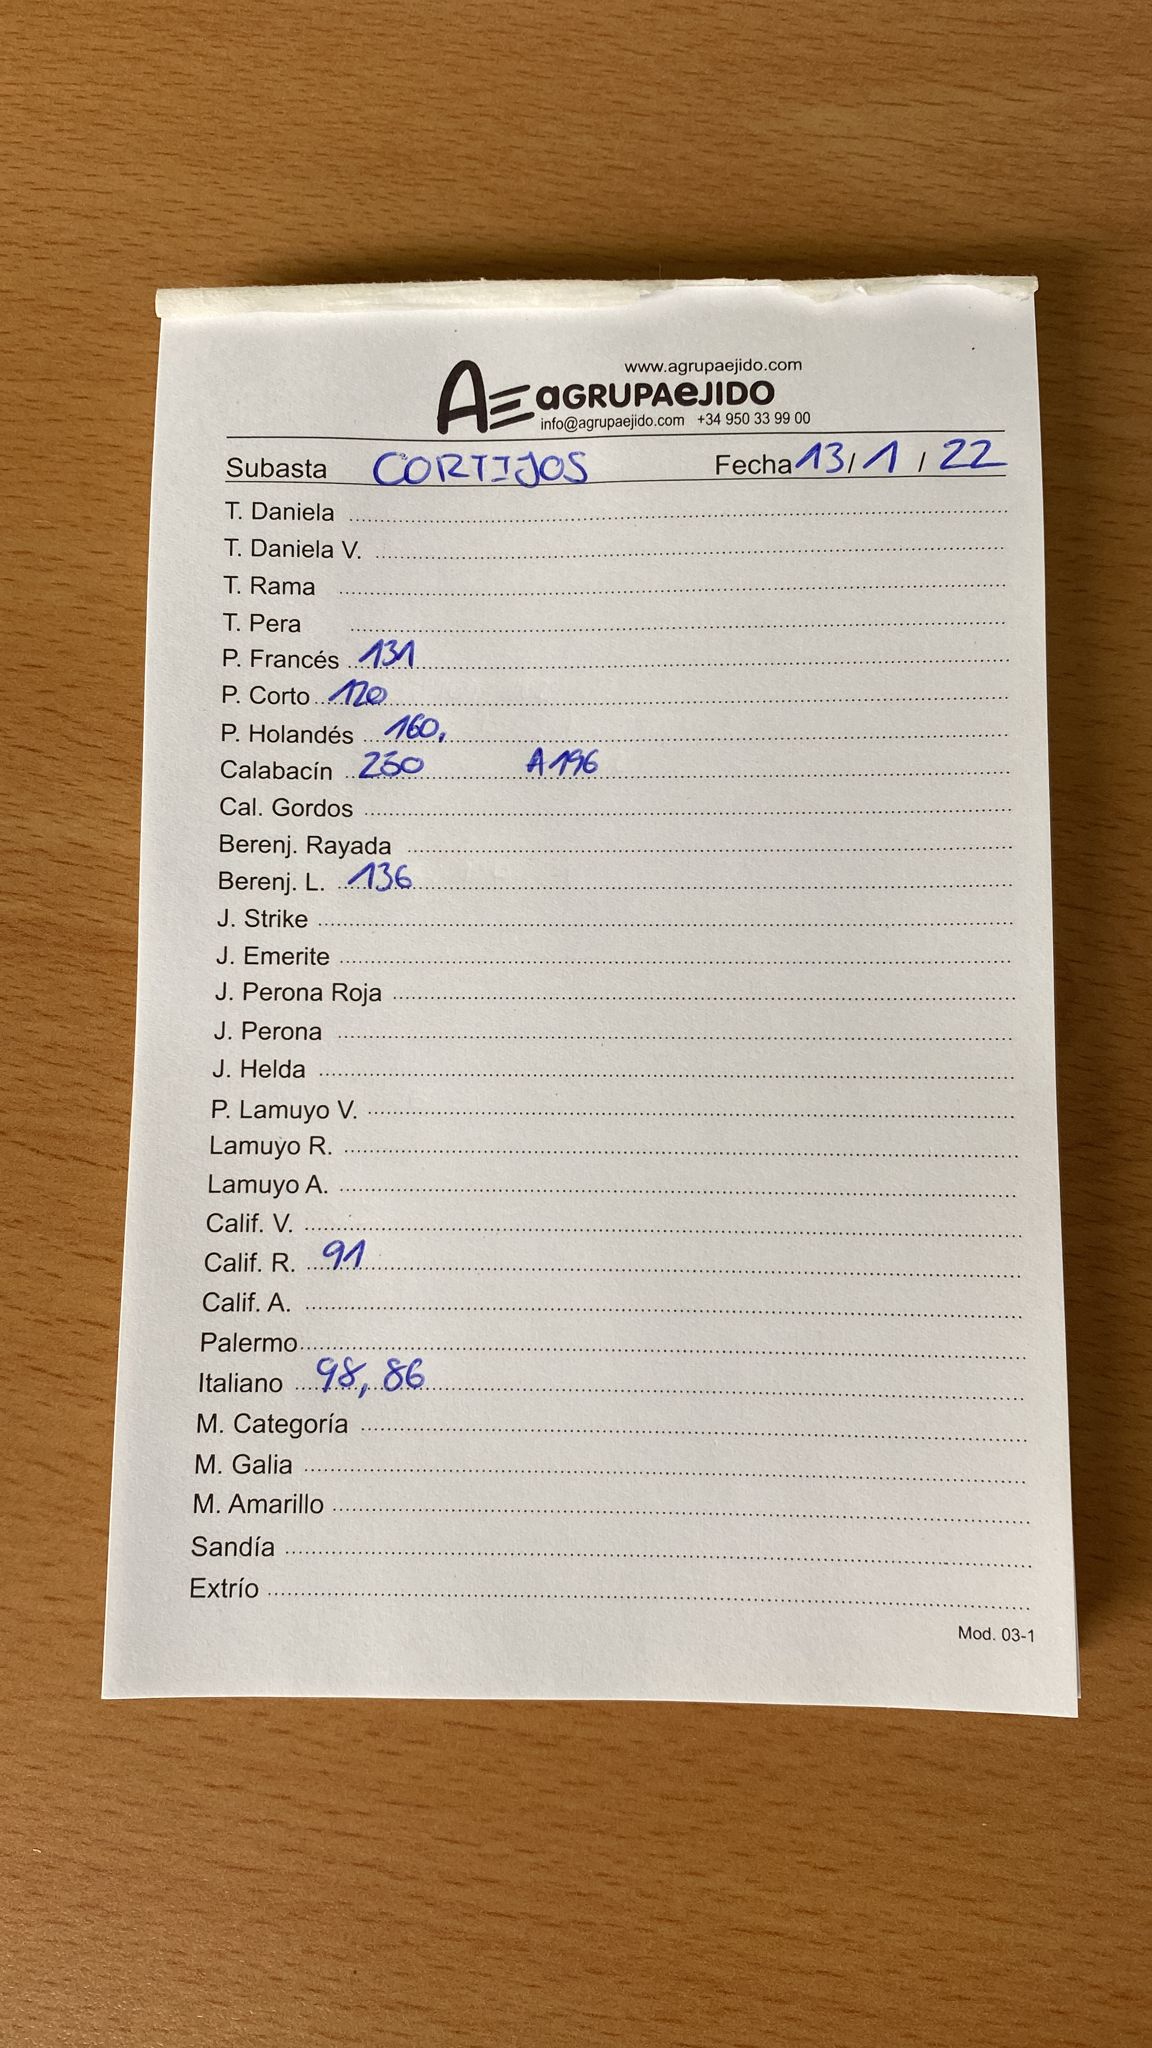 www.agrupaejido.com
AE aGRUPAeJIDO
info@agrupaejido.com +34 950 33 99 00
Subasta CORTIJOS Fecha 13/1/22
T. Daniela
T. Daniela V.
T. Rama
T. Pera
P. Francés 131
P. Corto 120
P. Holandés 160,
Calabacín 250 A196
Cal. Gordos
Berenj. Rayada
Berenj. L. 136
J. Strike
J. Emerite
J. Perona Roja
J. Perona
J. Helda
P. Lamuyo V.
Lamuyo R.
Lamuyo A.
Calif. V.
Calif. R. 91
Calif. A.
Palermo
Italiano 98, 86
M. Categoría
M. Galia
M. Amarillo
Sandía
Extrío
Mod. 03-1